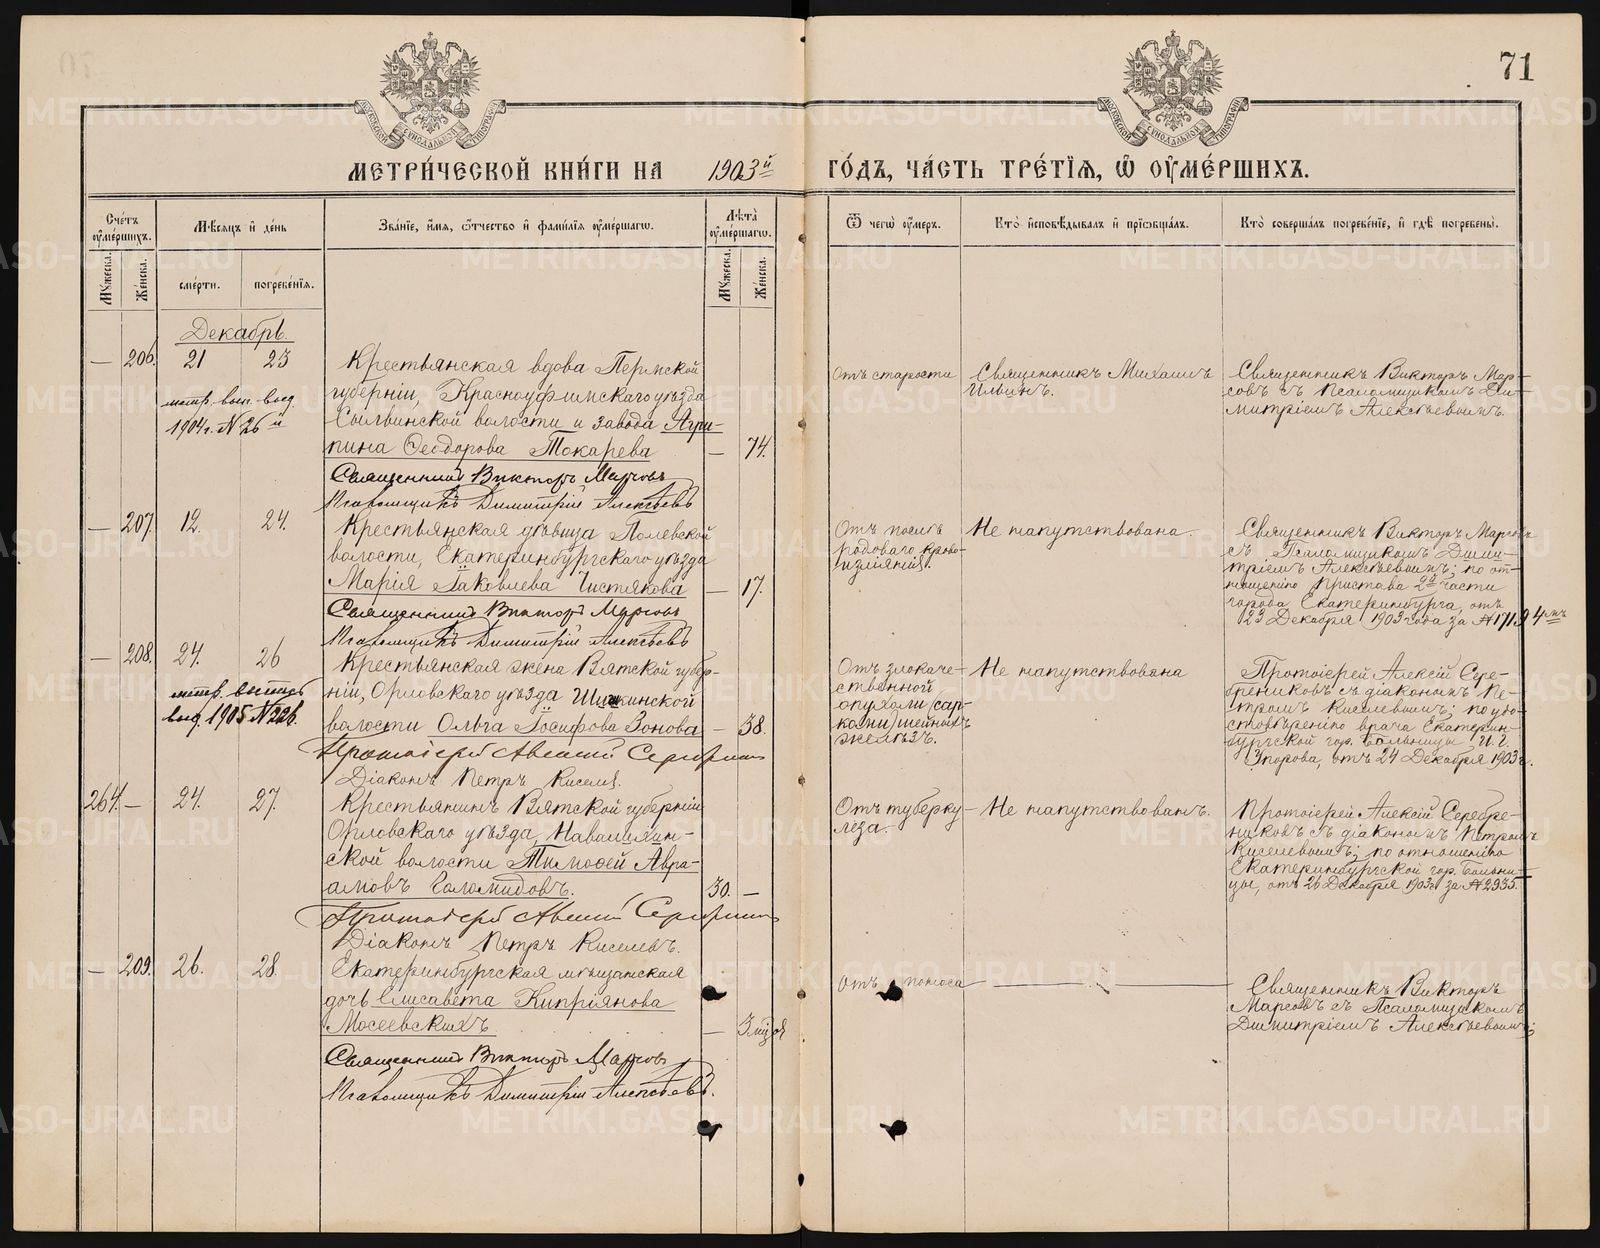 71
МЕТРИ́ЧЕСКОЙ КНИ́ГИ НА 1903й ГО́ДЪ, ЧА́СТЬ ТРЕ́ТІЯ, Ѡ ОУМЕ́РШИХЪ.
Сче́тъ оуме́ршихъ.
Мꙋжеска.
Же́нска.
Мѣ́сяцъ и де́нь
сме́рти.
погребе́нія.
Зва́ніе, и́мя, ѻ҆́тчество и фами́лія оуме́ршагѡ.
Лѣ́та оуме́ршагѡ.
Мꙋжеска.
Же́нска.
Ѿ чегѡ̀ оу́меръ.
Кто̀ исповѣ́дывалъ и прїѡбща́лъ.
Кто̀ соверша́лъ погребе́ніе, и гдѣ̀ погребены̀.
Декабрь.
— 206. 21 23
метр. вып. выд.
1904 г. № 26й
Крестьянская вдова Пермской
губерніи, Красноуфимскаго уѣзда
Сылвинской волости и завода Агри-
пина Ѳеодорова Токарева — 74.
Священникъ Викторъ Марсовъ
Псаломщикъ Димитрій Алексѣевъ
Отъ старости
Священникъ Михаилъ
Ильинъ.
Священникъ Викторъ Мар-
совъ съ Псаломщикомъ Ди-
митріемъ Алексѣевымъ.
— 207. 12. 24.
Крестьянская дѣвица Полевской
волости, Екатеринбургскаго уѣзда
Марія Іаковлева Чистякова — 17.
Священникъ Викторъ Марсовъ
Псаломщикъ Димитрій Алексѣевъ
Отъ послѣ
родоваго крово-
изліянія.
Не напутствована.
Священникъ Викторъ Марсовъ
съ Псаломщикомъ Дими-
тріемъ Алексѣевымъ; по от-
ношенію Пристава 2й части
города Екатеринбурга, отъ
23 Декабря 1903 года за №
— 208. 24. 26
метр. выпись
выд. 1905 № 226.
Крестьянская жена Вятской губер-
ніи, Орловскаго уѣзда
волости Ольга Іосифова Зонова — 38.
Протоіерей Алексій Серебрениковъ
Діаконъ Петръ Киселев.
Отъ злокаче-
ственной
опухоли (сар-
комы) шейныхъ
желѣзъ.
Не напутствована
Протоіерей Алексій Сере-
брениковъ съ діакономъ Пе-
тромъ Киселевымъ; по удо-
стовѣренію врача Екатерин-
бургской гор. Больницы
отъ 24 Декабря 1903 г.
264. — 24. 27.
Крестьянинъ Вятской губерніи
Орловскаго уѣзда,
ской волости Тимоѳей Авра-
амовъ Голомидовъ. 30. —
Протоіерей Алексій Серебрениковъ
Діаконъ Петръ Киселевъ.
Отъ туберку-
леза.
Не напутствованъ.
Протоіерей Алексій Серебре-
никовъ съ діакономъ Петромъ
Киселевымъ; по отношенію
Екатеринбургской гор. Больни-
цы, отъ 26 Декабря 1903 г. за № 2935.
— 209. 26. 28.
Екатеринбургская мѣщанская
дочь Елисавета Кипріянова
Мосеевскихъ — 3 мц.
Священникъ Викторъ Марсовъ
Псаломщикъ Димитрій Алексѣевъ.
Отъ поноса
Священникъ Викторъ
Марсовъ съ Псаломщикомъ
Димитріемъ Алексѣевымъ;
METRIKI.GASO-URAL.RU